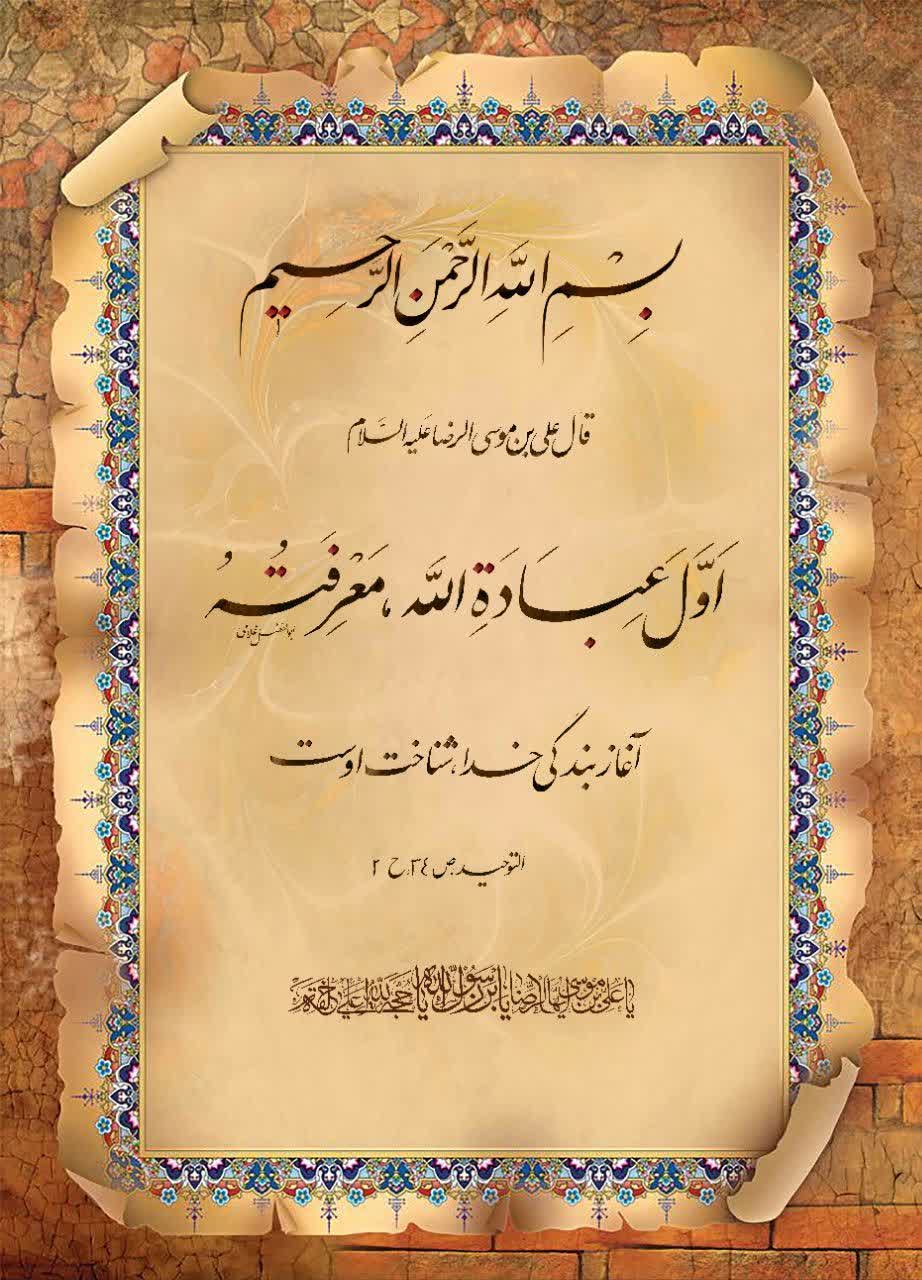 بِسْمِ اللَّهِ الرَّحْمَنِ الرَّحیمِ
قال علی بن موسی الرضا عَلَیهِ السَّلام
اَوَّلَ عِبادَةِ اللَّه ، مَعْرِفَتُهُ
آغاز بندگی خدا، شناخت اوست
التوحید، ص ٣٤، ح ٢
یا علی بن موسی ایها الرضا یا ابن رسول الله یا حجة الله علی خلقه